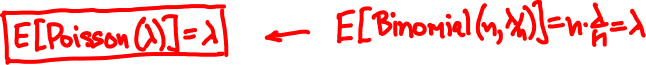 E[Poisson(λ)]=λ ← E[Binomial(n,λ/n)]=n·λ/n=λ